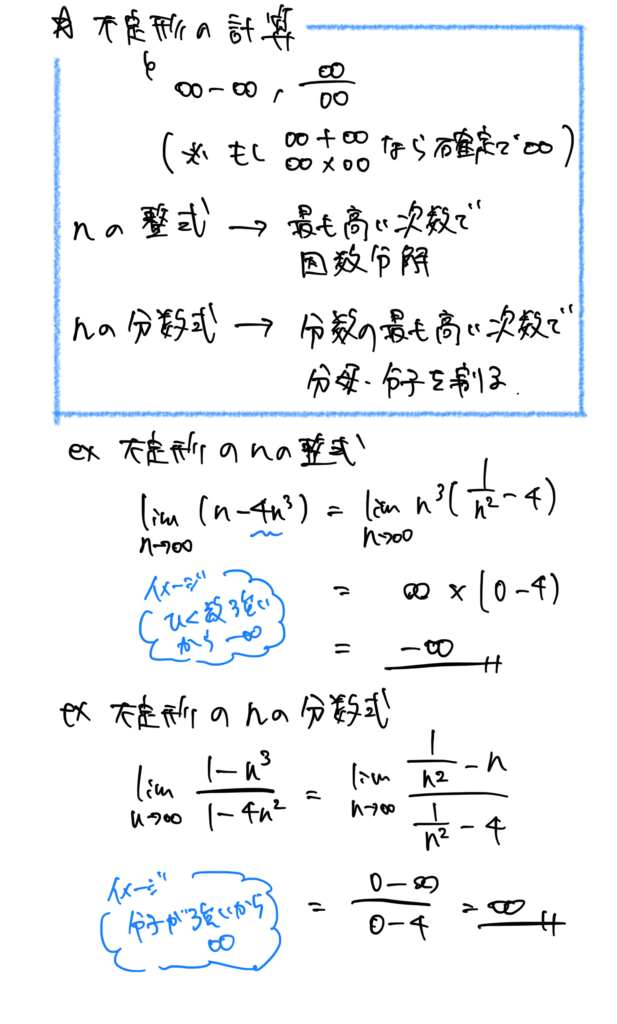 ☆ 不定形の計算
∞-∞, ∞/∞
(※ もし ∞+∞ ∞×∞ なら確定で∞)
nの整式 → 最も高い次数で
因数分解
nの分数式 → 分数の最も高い次数で
分母・分子を割る.
ex 不定形のnの整式
lim n→∞ (n-4n³) = lim n→∞ n³(1/n² - 4)
イメージ
ひく数強い
から -∞
= ∞ × (0-4)
= -∞
ex 不定形のnの分数式
lim n→∞ (1-n³)/(1-4n²) = lim n→∞ (1/n² - n)/(1/n² - 4)
イメージ
分子が強いから
∞
= (0-∞)/(0-4) = ∞